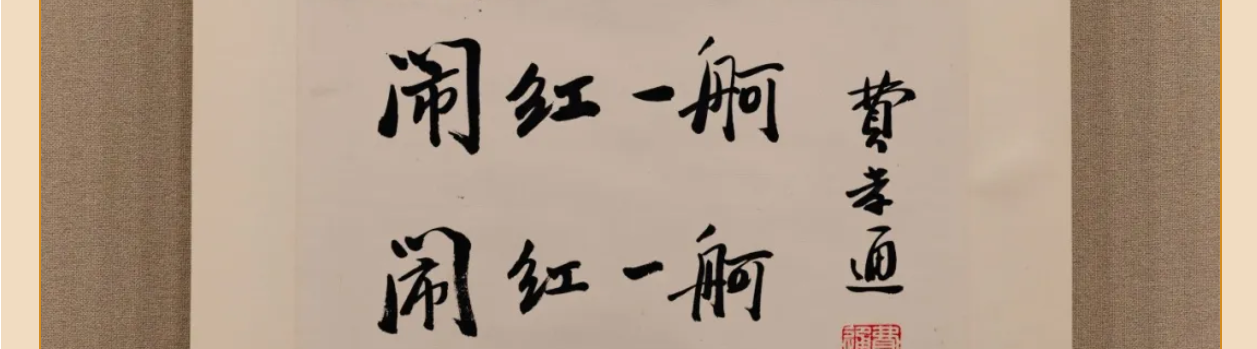 闹红一舸
闹红一舸
費孝通